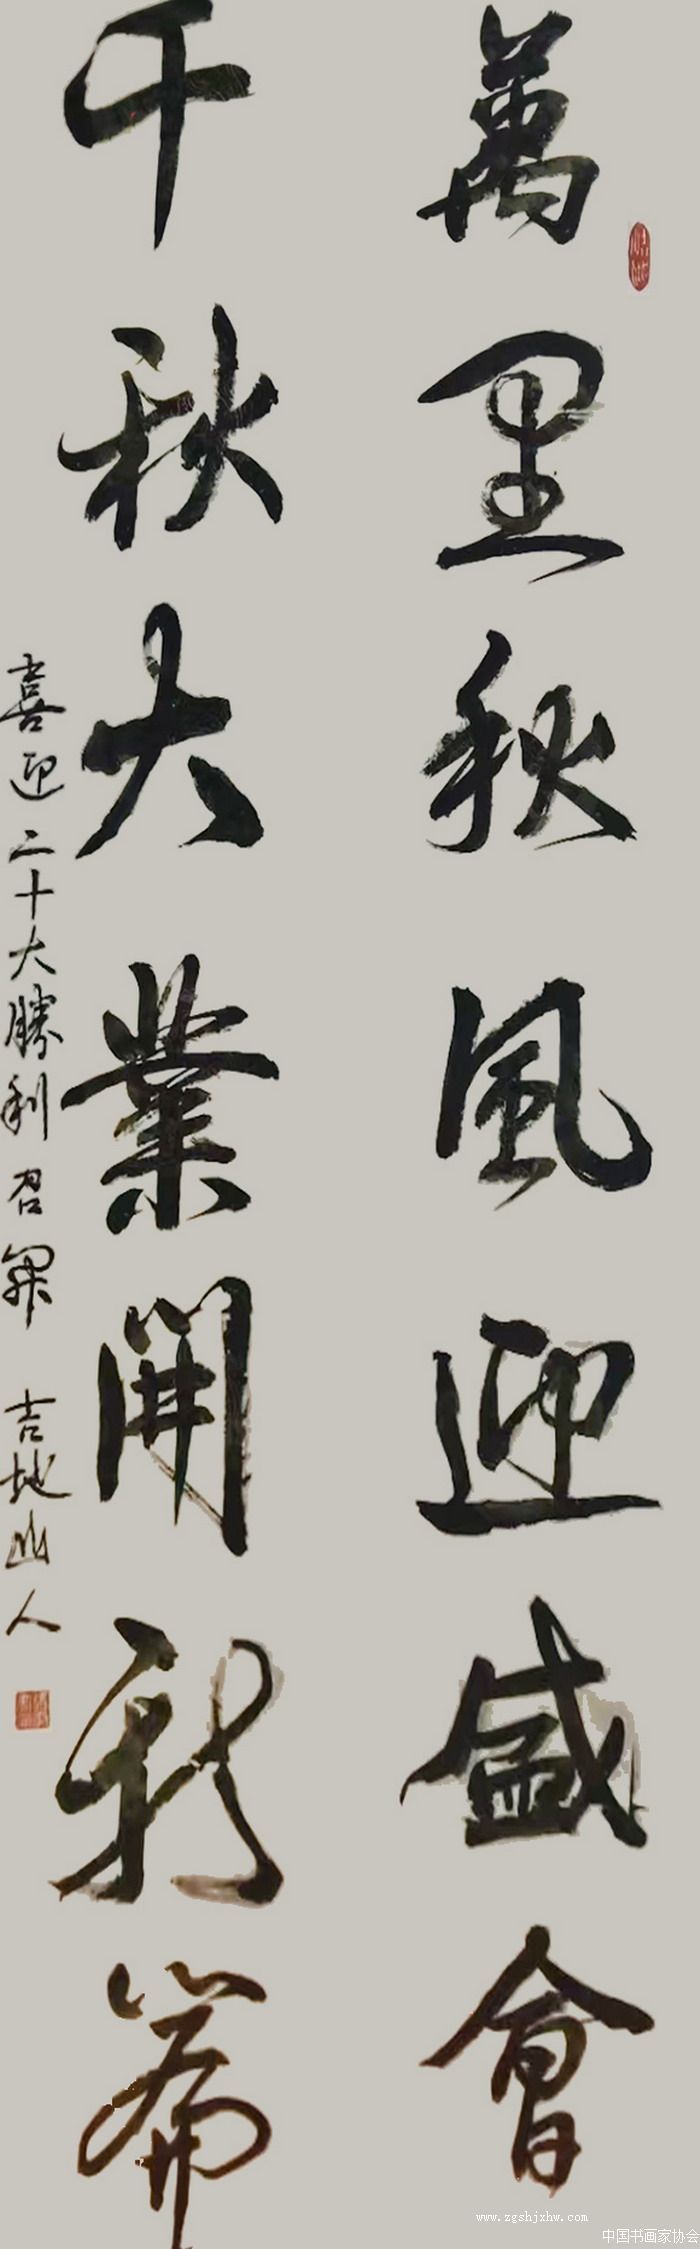 萬里秋風迎盛會
千秋大業開新篇
喜迎二十大勝利召開 吉地山人
www.zgshjxhw.com
中国书画家协会